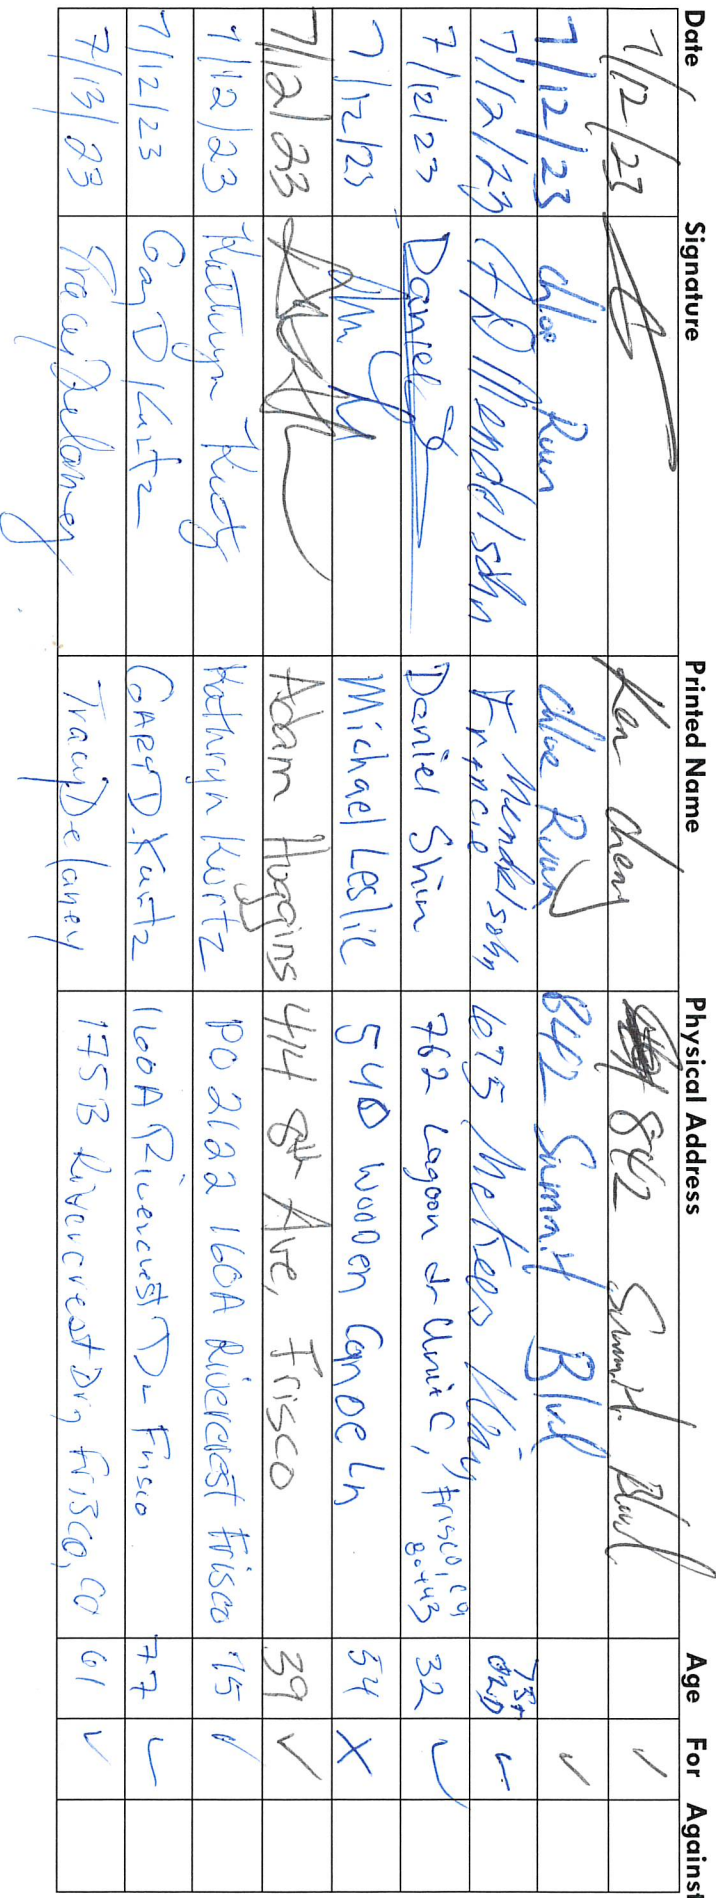 Date Signature Printed Name Physical Address Age For Against
7/12/23 Ken Cheng 842 Summit Blvd ✓
7/12/23 Chloe Ruan Chloe Ruan 842 Summit Blvd ✓
7/12/23 F D Mendelsohn Francie Mendelsohn 675 McKees Way 75+ OLD ✓
7/12/23 Daniel Daniel Shin 762 Lagoon dr Unit C, Frisco, CO 80443 32 ✓
7/12/23 Michael Leslie 540 Wooden Canoe Ln 54 X
7/12/23 Adam Huggins 414 8th Ave, Frisco 39 ✓
7/12/23 Kathryn Kurtz Kathryn Kurtz PO 2122 160A Rivercrest Frisco 75 ✓
7/12/23 Gary D Kurtz GARY D. Kurtz 160A Rivercrest Dr Frisco 77 ✓
7/13/23 Tracy Delaney Tracy Delaney 175B Rivercrest Dr, Frisco, CO 61 ✓